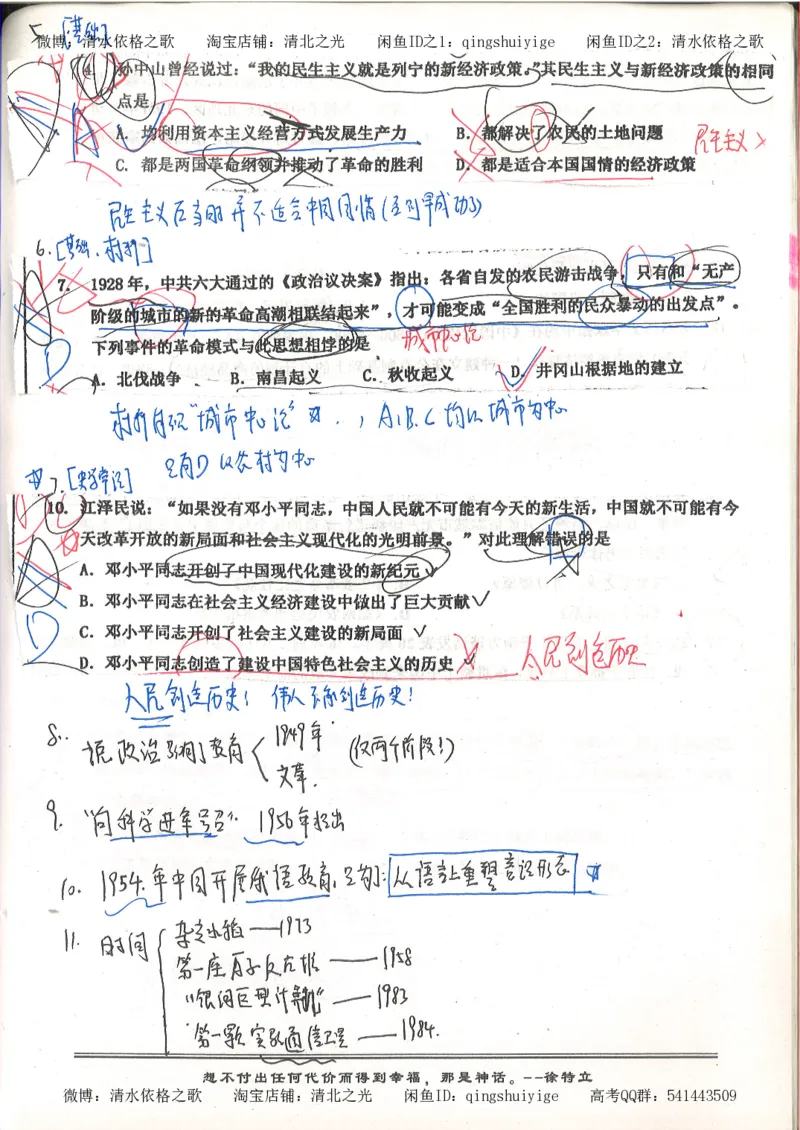 5. [基础]
微博：清水依格之歌 淘宝店铺：清北之光 闲鱼ID之1：qingshuiyige 闲鱼ID之2：清水依格之歌
4. 孙中山曾经说过：“我的民生主义就是列宁的新经济政策。”其民生主义与新经济政策的相同
点是
A. 均利用资本主义经营方式发展生产力 B. 都解决了农民的土地问题
民生主义×
C. 都是两国革命纲领并推动了革命的胜利 D. 都是适合本国国情的经济政策
民生主义在当时并不适合中国国情
6. [基础、材料]
7. 1928年，中共六大通过的《政治议决案》指出：各省自发的农民游击战争，只有和“无产
阶级的城市的新的革命高潮相联结起来”，才可能变成“全国胜利的民众暴动的出发点”。
下列事件的革命模式与此思想相悖的是
城市中心论
A. 北伐战争 B. 南昌起义 C. 秋收起义 D. 井冈山根据地的建立
材料体现“城市中心论”，A、B、C均以城市为中心
只有D以农村为中心
7.
10. 江泽民说：“如果没有邓小平同志，中国人民就不可能有今天的新生活，中国就不可能有今
天改革开放的新局面和社会主义现代化的光明前景。”对此理解错误的是
A. 邓小平同志开创了中国现代化建设的新纪元✓
B. 邓小平同志在社会主义经济建设中做出了巨大贡献✓
C. 邓小平同志开创了社会主义建设的新局面 ✓
D
D. 邓小平同志创造了建设中国特色社会主义的历史 × 人民创造历史
人民创造历史！伟人不能创造历史！
8. 说政治影响了教育 1949年 文革. (仅两个阶段!)
9. “向科学进军号召” 1956年提出
10. 1954年中国开展俄语教育，说明：从语言上重塑意识形态
11. 时间
杂交水稻——1973
第一座原子反应堆——1958
“银河巨型计算机”——1983
第一颗实验通信卫星——1984.
想不付出任何代价而得到幸福，那是神话。--徐特立
微博：清水依格之歌 淘宝店铺：清北之光 闲鱼ID：qingshuiyige 高考QQ群：541443509